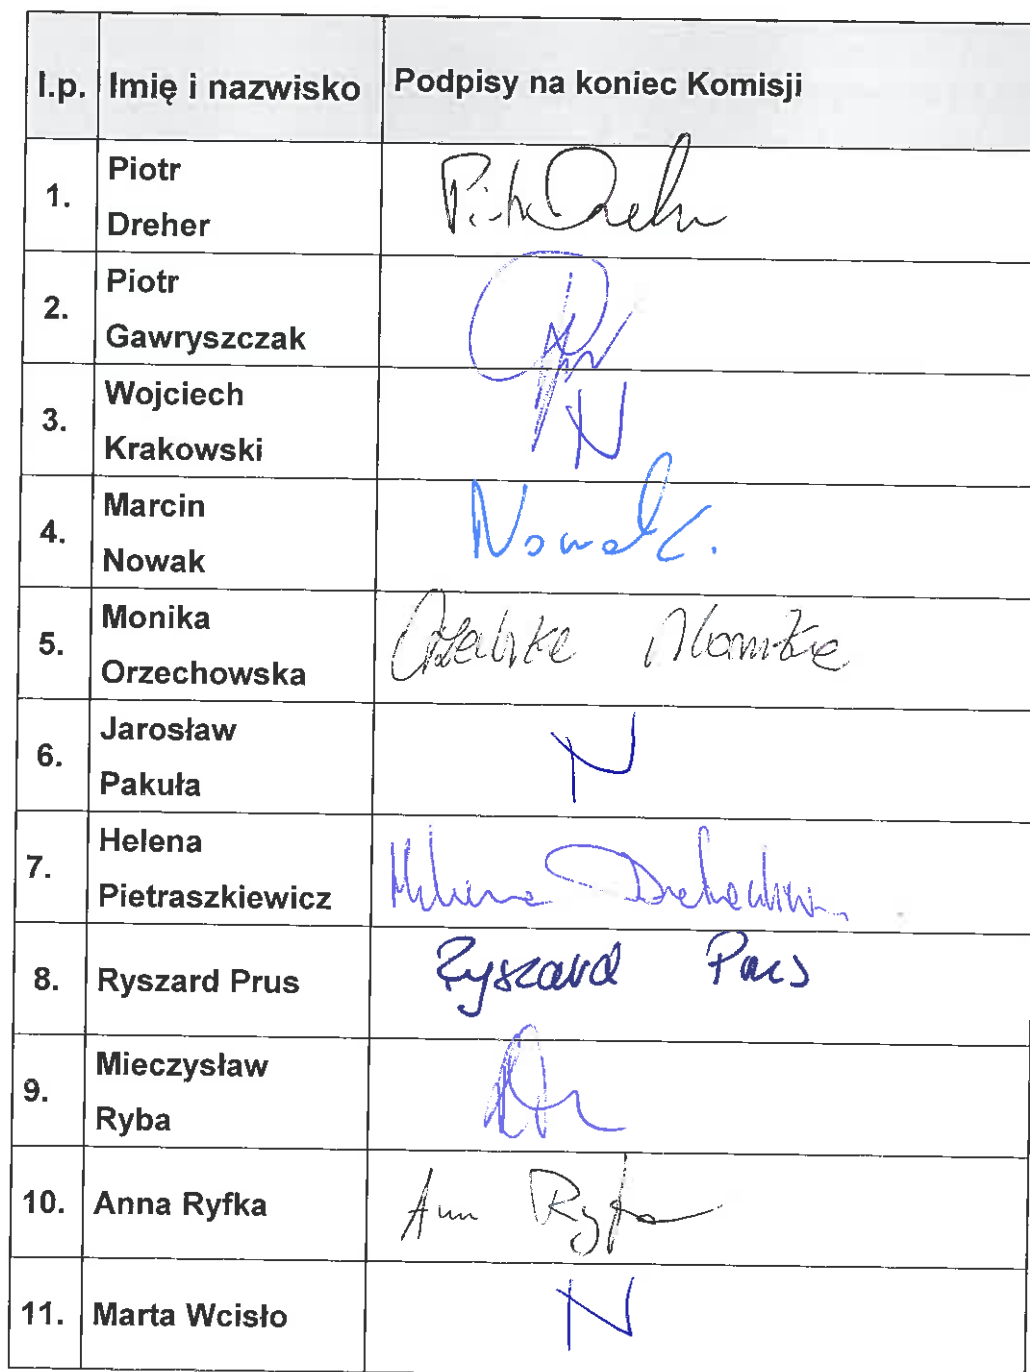 l.p. Imię i nazwisko Podpisy na koniec Komisji
1. Piotr
Dreher
Piotr Dreher
2. Piotr
Gawryszczak
3. Wojciech
Krakowski
N
4. Marcin
Nowak
Nowak.
5. Monika
Orzechowska
Monika
6. Jarosław
Pakuła
N
7. Helena
Pietraszkiewicz
Helena
8. Ryszard Prus
Ryszard Prus
9. Mieczysław
Ryba
10. Anna Ryfka
Anna Ryfka
11. Marta Wcisło
N